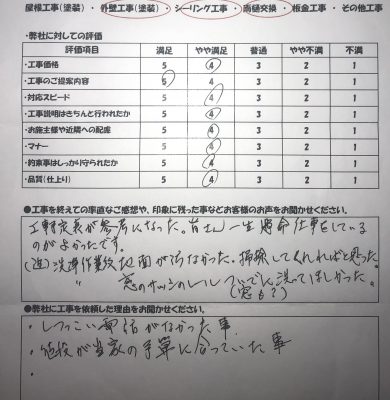 屋根工事(塗装) ・ 外壁工事(塗装) ・ シーリング工事 ・ 雨樋交換 ・ 板金工事 ・ その他工事
・弊社に対しての評価
評価項目 満足 やや満足 普通 やや不満 不満
・工事価格 5 4 3 2 1
・工事のご提案内容 5 4 3 2 1
・対応スピード 5 4 3 2 1
・工事説明はきちんと行われたか 5 4 3 2 1
・お施主様や近隣への配慮 5 4 3 2 1
・マナー 5 4 3 2 1
・約束事はしっかり守られたか 5 4 3 2 1
・品質(仕上り) 5 4 3 2 1
●工事を終えての率直なご感想や、印象に残った事などお客様のお声をお聞かせください。
工事写真が参考になった。皆さん一生懸命仕事をしている
のがよかったです。
洗浄作業後地面が汚なかった。掃除してくれればと思った。
〃 窓のサッシのレールついでに洗ってほしかった。
(窓も?)
●弊社に工事を依頼した理由をお聞かせください。
・しつこい電話がなかった事
・値段が当家の予算に合っていた事
・